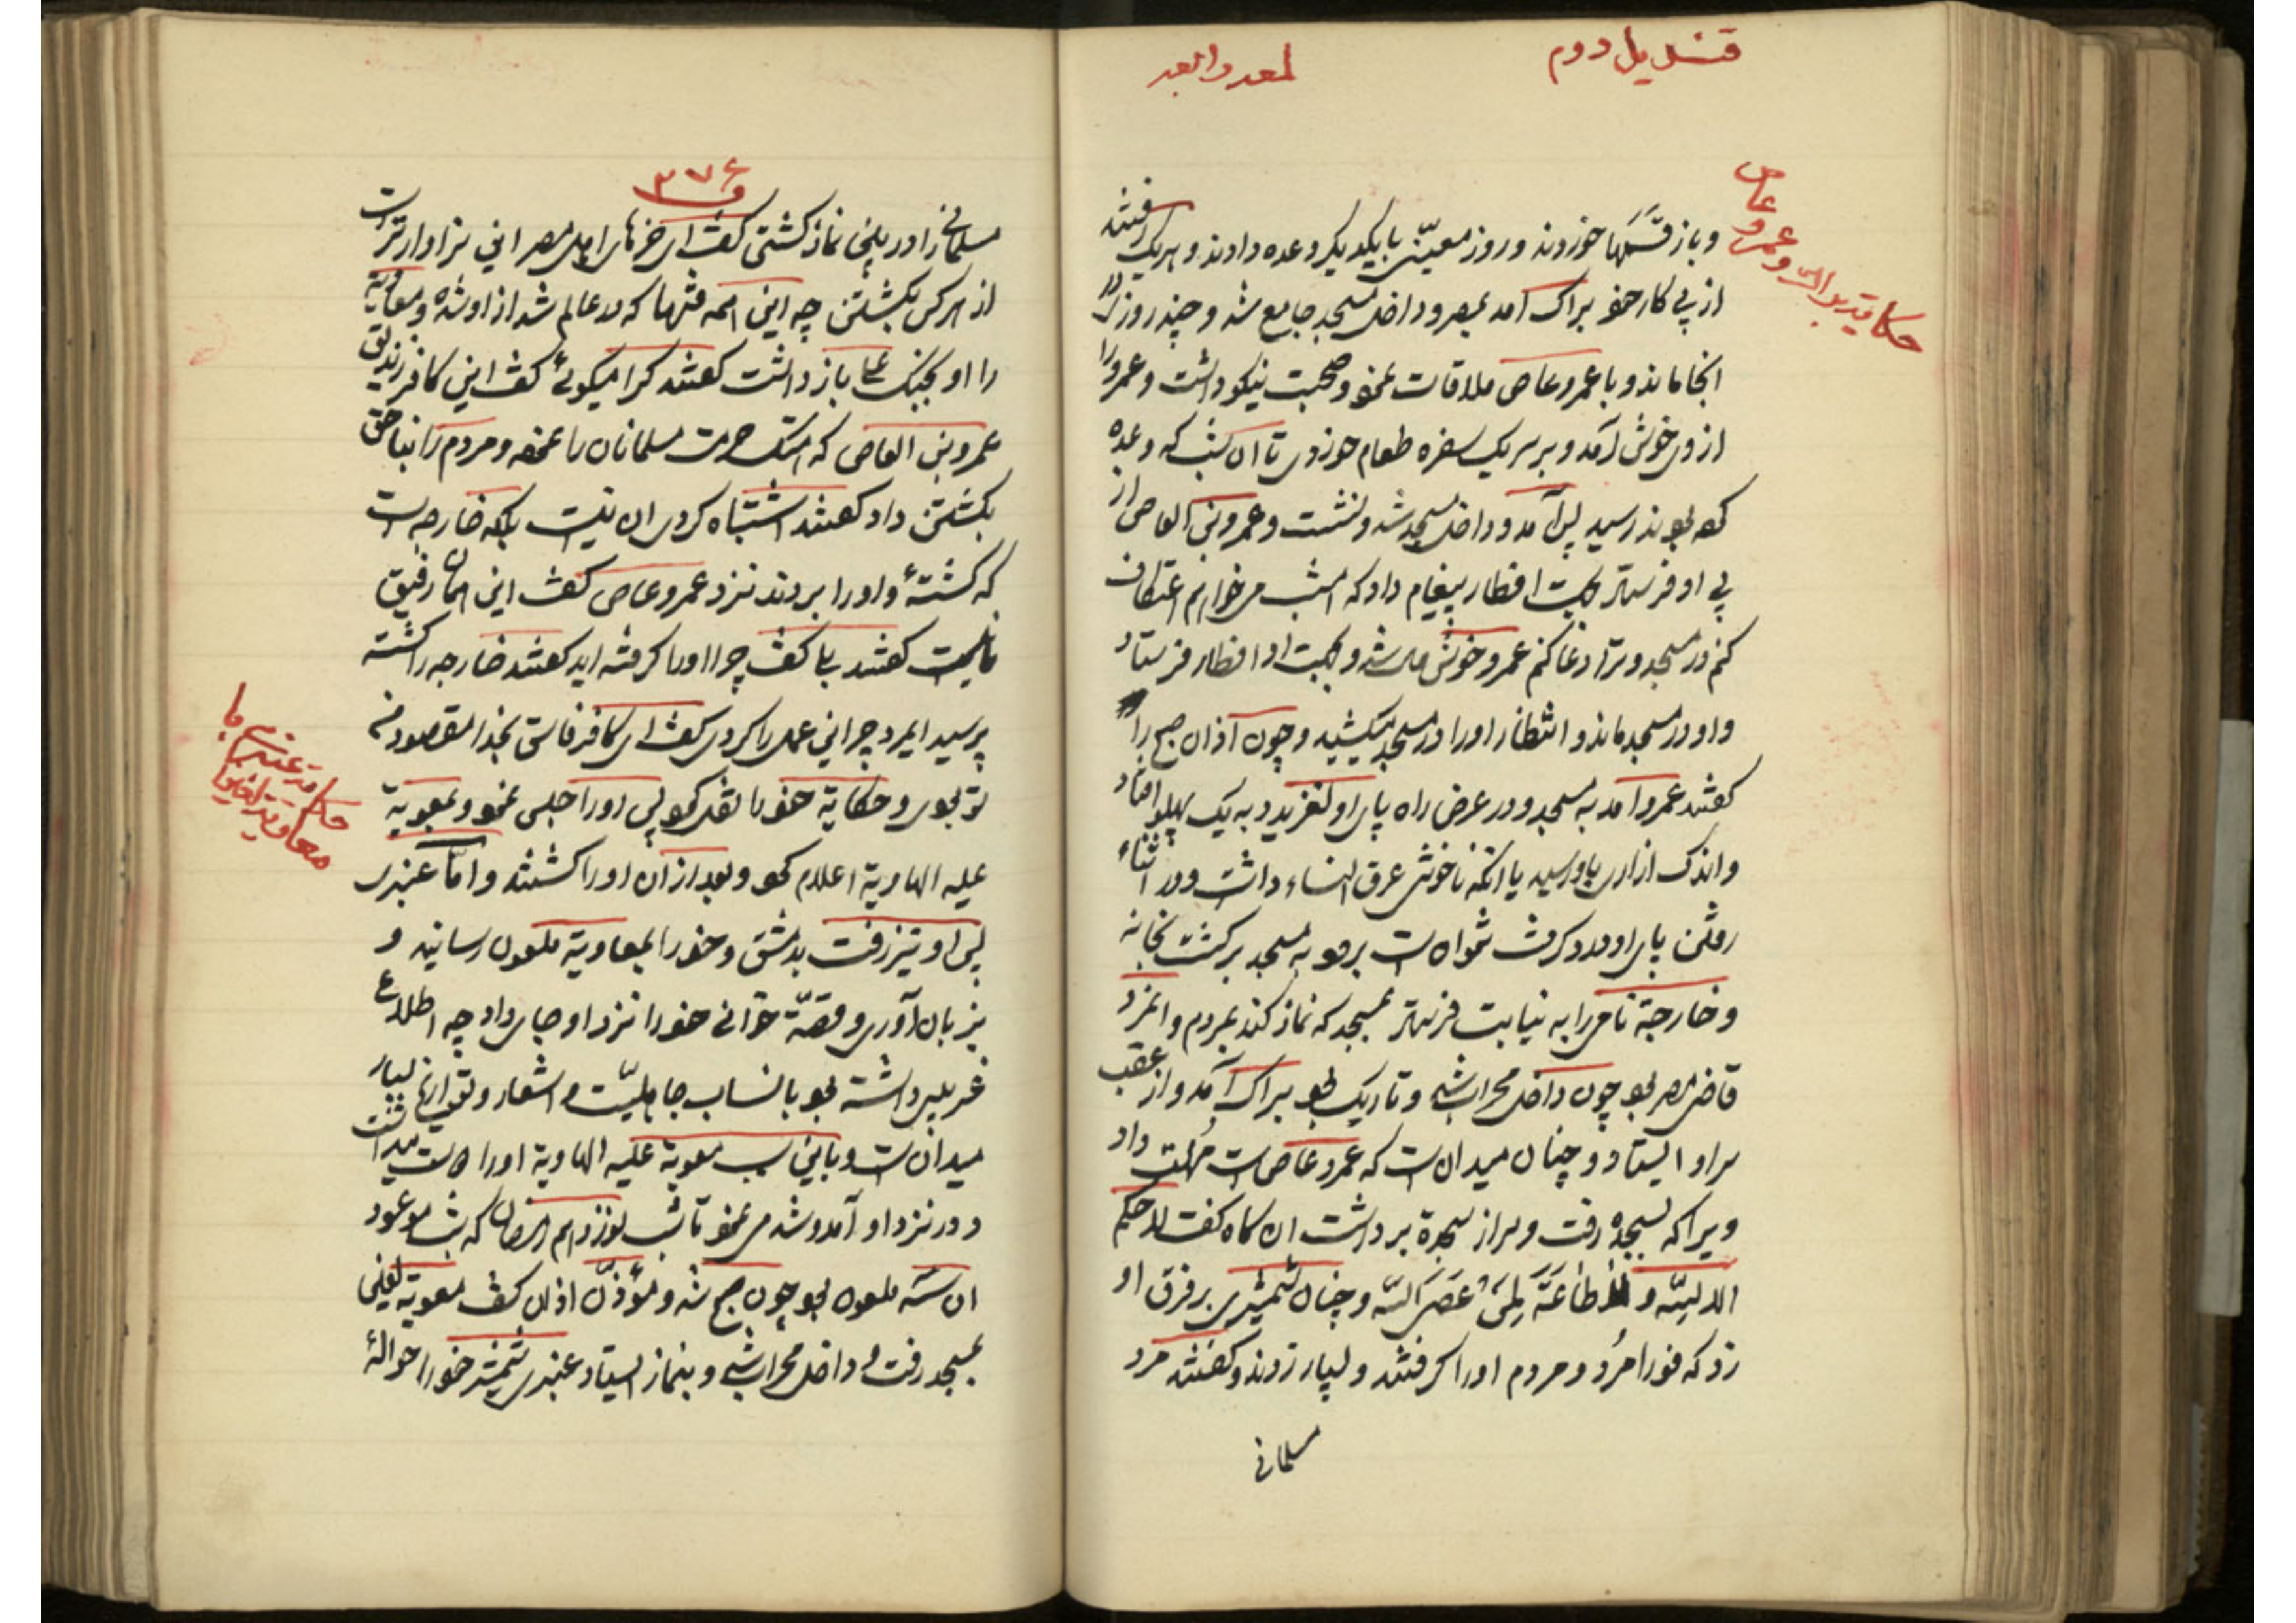 قندیل دوم
حکایة
وعمرو عاص
و باز قسمها خوردند و روز معیّن با یکدیگر وعده دادند و هر یک رفتند
از پی کار خود براک آمد بمصر و داخل مسجد جامع شد و چند روز در
انجا ماند و با عمرو عاص ملاقات نمود و صحبت نیکو داشت و عمرو را
از وی خوش آمد و بر سر یک سفره طعام خوردی تا آن شب که وعده
کرده بودند رسید پس آمد و داخل مسجد شد و نشست و عمرو بن العاص از
پی او فرستاد بجهت افطار پیغام داد که امشب می خواهم اعتکاف
کنم در مسجد و ترا دعا کنم عمرو خوش شد و بجهت او افطار فرستاد
و او در مسجد ماند و انتظار او را در مسجد میکشید و چون آذان صبح را
گفتند عمرو آمد به مسجد و در عرض راه پای او لغزید و به یک پهلو افتاد
و اندک ازاری باو رسید یا انکه ناخوشی عرق النساء داشت و در اثناء
رفتن پای او درد گرفت نتوانست برود به مسجد برگشت بخانه
و خارجة نامی را به نیابت فرستاد بمسجد که نماز کند بمردم و انمرد
قاضی مصر بود چون داخل محراب شد و تاریک بود براک آمد و از عقب
سر او ایستاد و چنان میدانست که عمرو عاص است مهلت داد
ویرا که بسجده رفت و سر از سجدة برداشت ان گاه گفت لا حکم
الا لله و لا طاعَةَ لِمَن عَصَی الله و چنان شمشیری بر فرق او
زد که فورا مُرد و مردم او را گرفتند و بسیار زدند و گفتند مرد
مسلمانی
۳۷۶
مسلمانی را در پلنی نماز کشتی گفت ای خرهای اهل مصر این سزاوارتر است
از هر کس بکشتن چه این همه فتنها که در عالم شد از او شده و معاویة
را او بجنگ علی باز داشت گفتند کرا میگوئی گفت این کافر زندیق
عمرو بن العاص که هتک حرمت مسلمانان را نموده و مردم را بناحق
بکشتن داد گفتند اشتباه کردی ان نیست بلکه خارجه است
که کشتهٔ و او را بردند نزد عمرو عاص گفت این همان رفیق
ما نیست گفتند بلی گفت چرا او را گرفته اید گفتند خارجه را کشته
پرسید ایمرد چرا این عمل را کردی گفت ای کافر فاسق بخدا مقصود من
تو بودی و حکایة خود را نقل کرد پس او را حبس نمود و بمعویة
علیه الهاویة اعلام کرد و بعد از آن او را کشتند و امّا عنبری
پس او نیز رفت بدمشق و خود را بمعاویة ملعون رسانید و
بزبان آوری و قصّه خوانی خود را نزد او جای داد چه اطلاع
غریبی داشته بود بانساب جاهلیّت و اشعار و تواریخ بسیار
میدانست و باین سبب معویة علیه الهاویة او را دوست میداشت
و در نزد او آمد و شد می نمود تا شب نوزدهم رمضان که شب موعود
ان سه ملعون بود چون صبح شد و مؤذّن اذان گفت معویة لعین
بمسجد رفت و داخل محراب شد و بنماز ایستاد عنبری شمشیر خود را حوالهٔ
حکایة عنبری با
معاویة